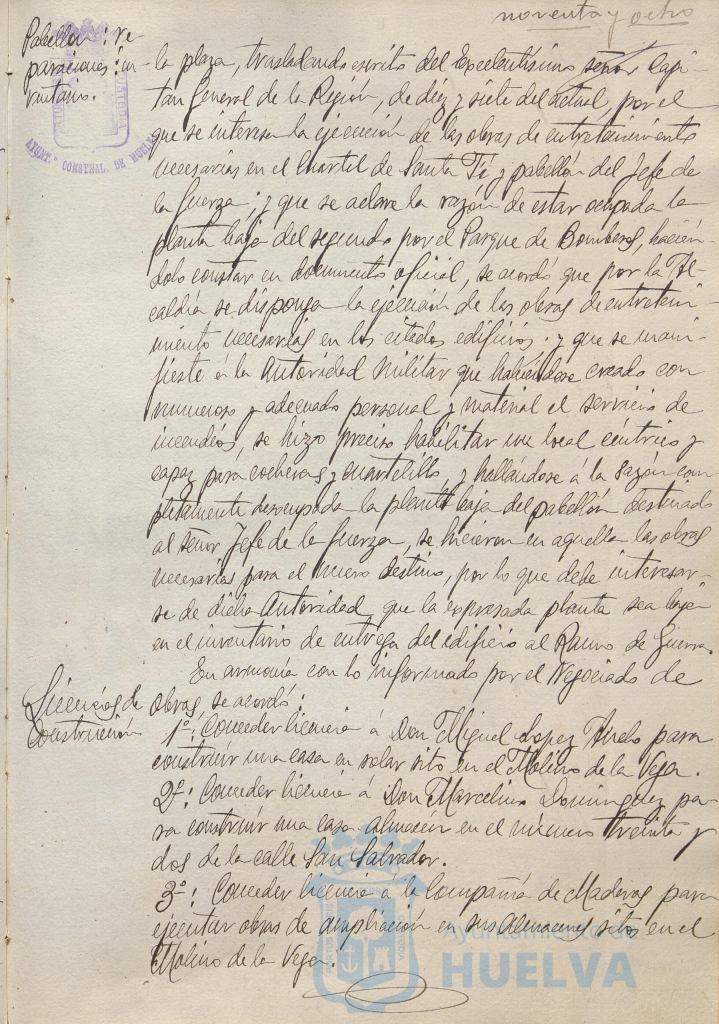 noventa y ocho
Pabellón: re-
paraciones: in-
ventario.
AYUNT.º CONSTNAL. DE HUELVA
la plaza, trasladando escrito del Excelentísimo señor Capi-
tán General de la Región, de diez y siete del actual, por el
que se interesa la ejecución de las obras de entretenimiento
necesarias en el Cuartel de Santa Fé y pabellón del Jefe de
la fuerza; y que se aclare la razón de estar ocupada la
planta baja del segundo por el Parque de Bomberos, hacién-
dolo constar en documento oficial, se acordó que por la Al-
caldía se disponga la ejecución de las obras de entreteni-
miento necesarias en los citados edificios: y que se mani-
fieste á la Autoridad Militar que habiéndose creado con
numeroso y adecuado personal y material el servicio de
incendios, se hizo preciso habilitar un local céntrico y
capaz para cocheras y cuartelillo, y hallándose á la sazón com-
pletamente desocupada la planta baja del pabellón destinado
al señor Jefe de la fuerza, se hicieron en aquella las obras
necesarias para el nuevo destino, por lo que debe interesar-
se de dicha Autoridad que la expresada planta sea baja
en el inventario de entrega del edificio al Ramo de Guerra.
Licencias de
construcción
En armonía con lo informado por el Negociado de
Obras, se acordó:
1º: Conceder licencia á Don Miguel Lopez para
construir una casa en solar sito en el Molino de la Vega.
2º: Conceder licencia á Don Marcelino Dominguez pa-
ra construir una casa almacén en el número treinta y
dos de la calle San Salvador.
3º: Conceder licencia á la Compañía de Maderas para
ejecutar obras de ampliación en sus Almacenes sitos en el
Molino de la Vega.
Ayuntamiento de
HUELVA